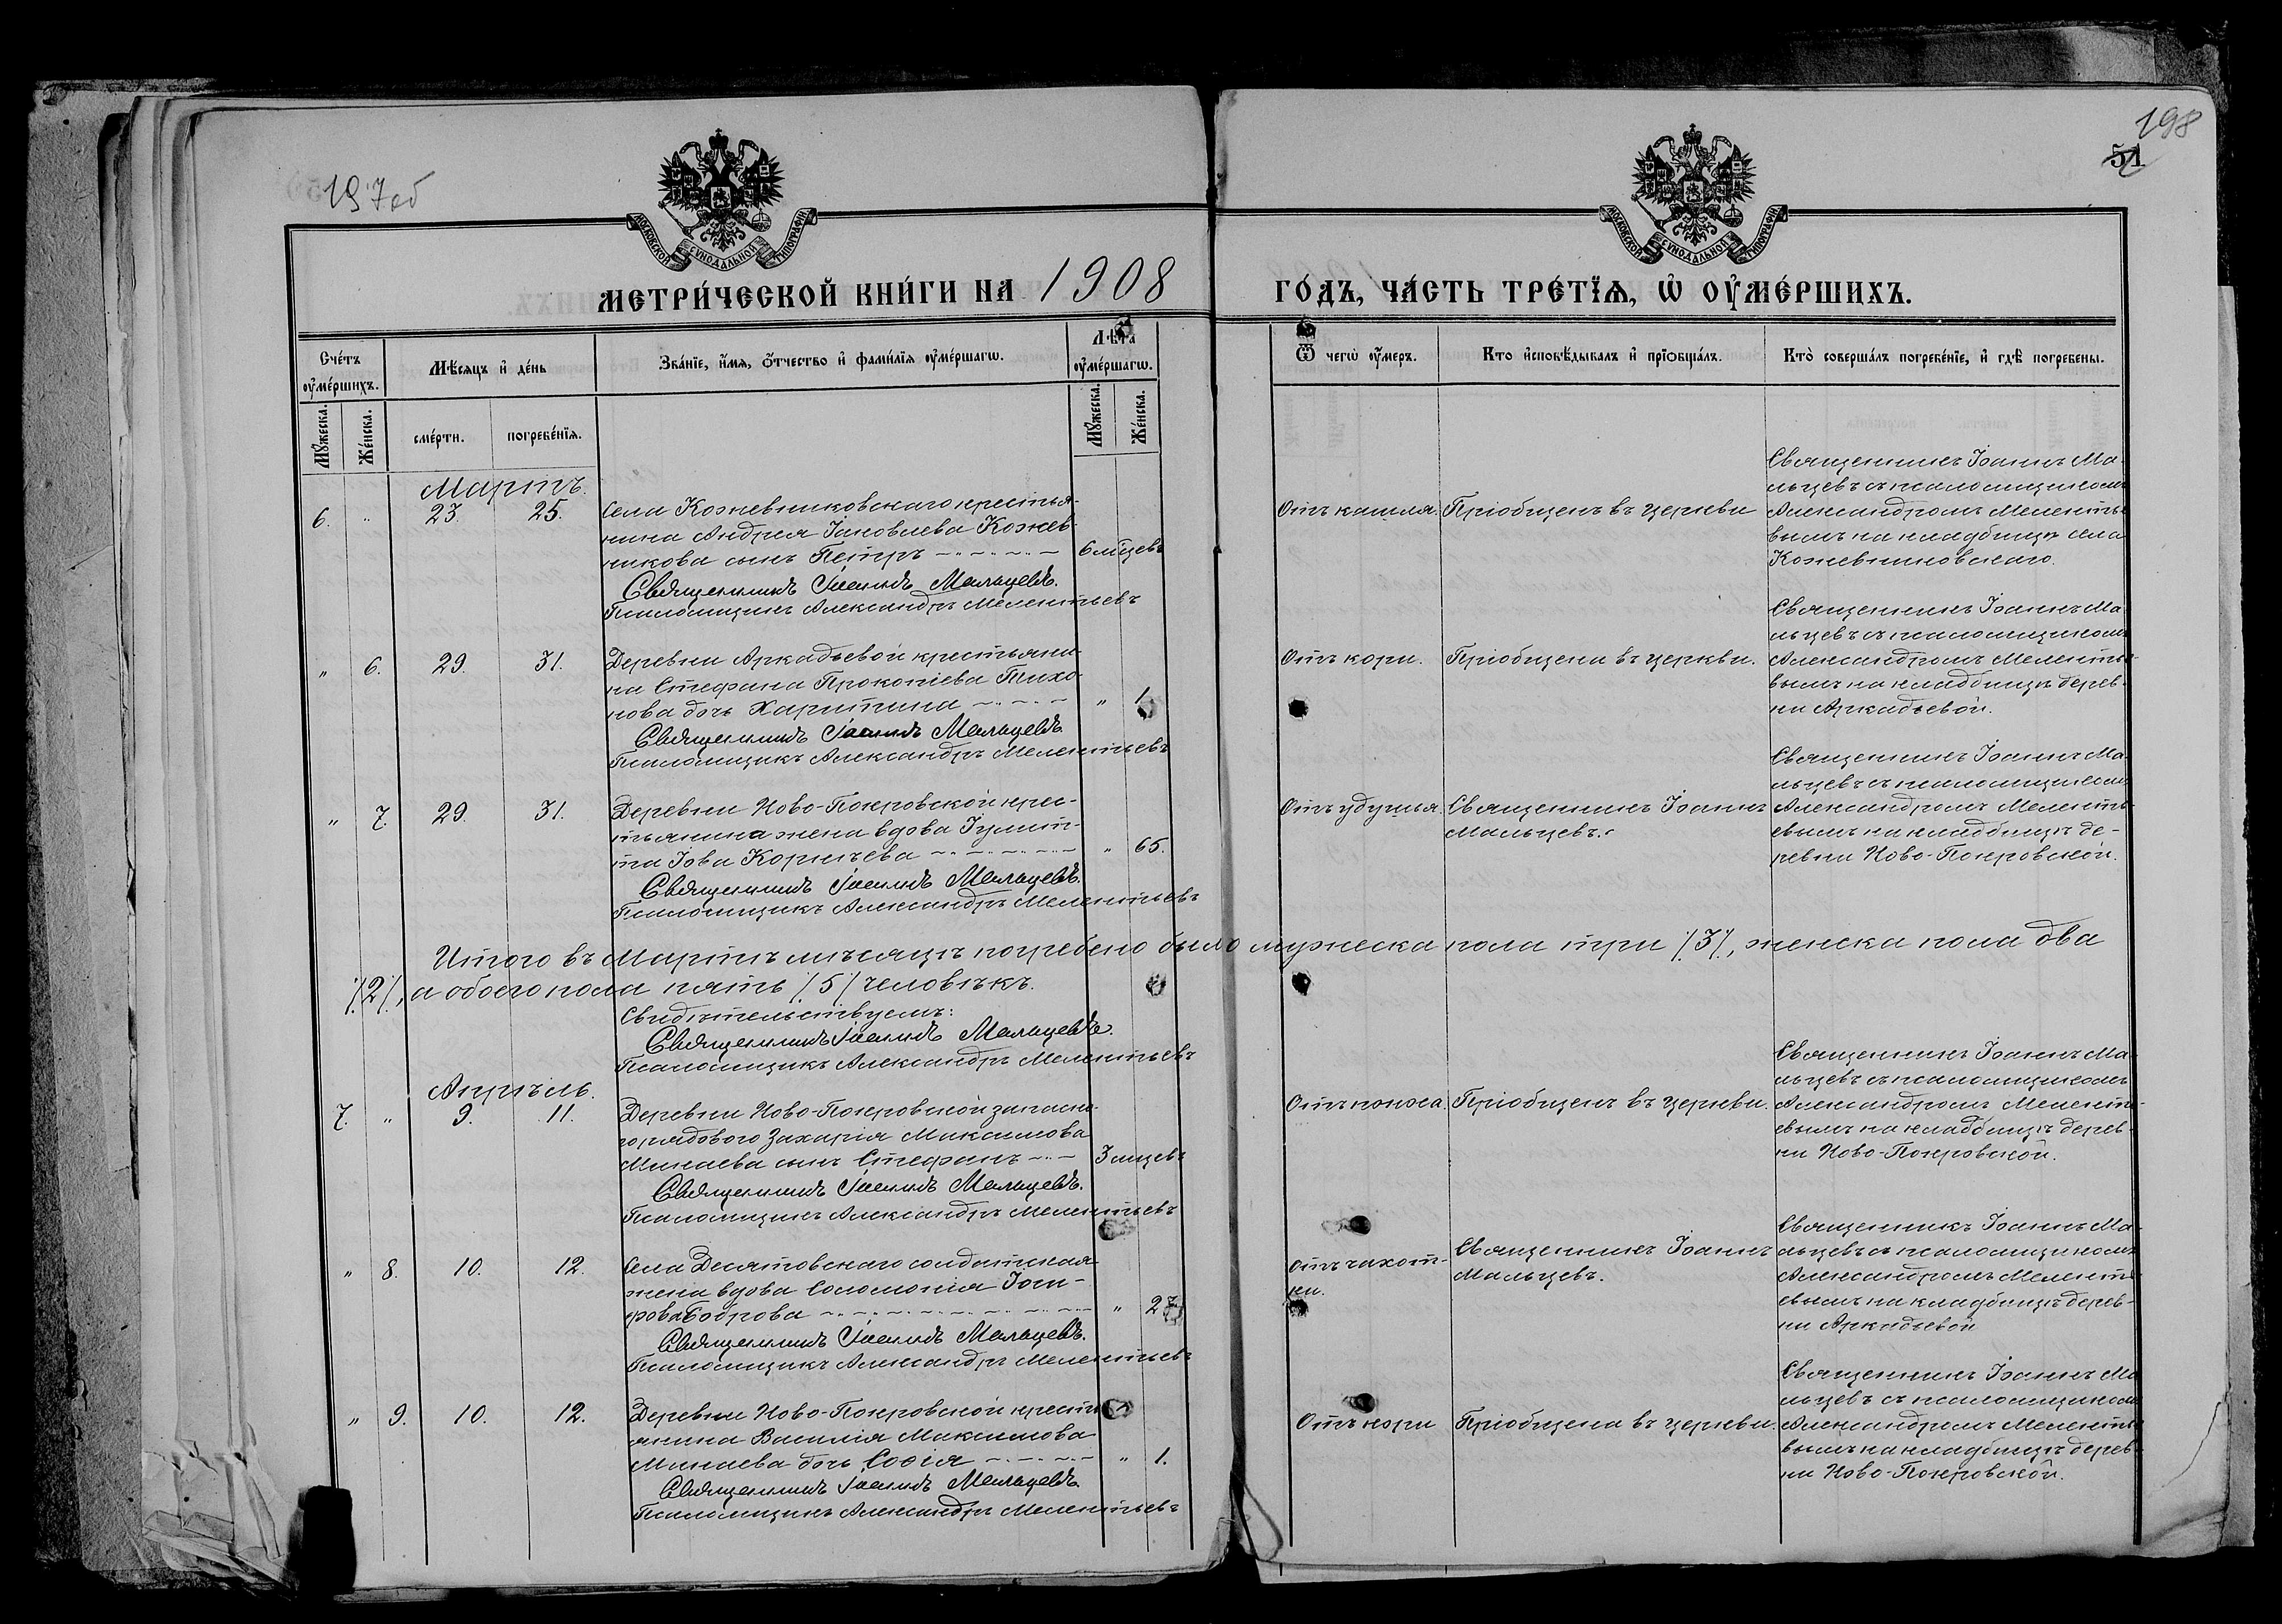 197об
198
51
МОСКОВСКОЙ СѴНОДАЛЬНОЙ ТИПОГРАФІИ
МОСКОВСКОЙ СѴНОДАЛЬНОЙ ТИПОГРАФІИ
МЕТРИ́ЧЕСКОЙ КНИ́ГИ НА 1908
ГО́ДЪ, ЧА́СТЬ ТРЕ́ТЇѦ, Ѡ҆ ОУ҆МЕ́РШИХЪ.
Сче́тъ оу҆ме́ршихъ.
Мѣ́сяцъ и҆ де́нь
Зва́нїе, и҆́мѧ, ѻ҆́тчество и҆ фами́лїѧ оу҆ме́ршагѡ.
Лѣ́та оу҆ме́ршагѡ.
Ѿ чегѡ̀ оу҆́меръ.
Кто̀ и҆сповѣ́дывалъ и҆ прїѡбща́лъ.
Кто̀ соверша́лъ погребе́нїе, и҆ гдѣ̀ погребены.
Мꙋ́жеска.
Же́нска.
сме́рти.
погребе́нїѧ.
Мꙋ́жеска.
Же́нска.
Мартъ.
6. " 23. 25.
Села Кожевниковскаго крестья-
нина Андрея Іаковлева Кожев-
никова сынъ Петръ 6 мцевъ
Священникъ Іоаннъ Мальцевъ.
Псаломщикъ Александръ Мелентьевъ
Отъ кашля.
Пріобщенъ въ церкви
Священникъ Іоаннъ Ма-
льцевъ съ псаломщикомъ
Александромъ Меленть-
вымъ на кладбищѣ села
Кожевниковскаго.
" 6. 29. 31.
Деревни Аркадьевой крестьяни-
на Стефана Прокопіева Тихо-
нова дочь Харитина " 1.
Священникъ Іоаннъ Мальцевъ
Псаломщикъ Александръ Мелентьевъ
Отъ кори.
Пріобщена въ церкви.
Священникъ Іоаннъ Ма-
льцевъ съ псаломщикомъ
Александромъ Меленть-
вымъ на кладбищѣ дерев-
ни Аркадьевой.
" 7. 29. 31.
Деревни Ново-Покровской крес-
тьянина жена вдова Іулит-
та Іова Корнѣева " 65.
Священникъ Іоаннъ Мальцевъ.
Псаломщикъ Александръ Мелентьевъ
Отъ удушья.
Священникъ Іоаннъ
Мальцевъ.
Священникъ Іоаннъ Ма-
льцевъ съ псаломщикомъ
Александромъ Меленть-
евымъ на кладбищѣ де-
ревни Ново-Покровской.
Итого въ Мартѣ мѣсяцѣ погребено было мужеска пола три /3/, женска пола два
/2/, а обоего пола пять /5/ человѣкъ.
Свидѣтельствуемъ:
Священникъ Іоаннъ Мальцевъ.
Псаломщикъ Александръ Мелентьевъ
Апрѣль.
7. " 9. 11.
Деревни Ново-Покровской запасна-
го рядового Захарія Максимова
Минаева сынъ Стефанъ 3 мцевъ
Священникъ Іоаннъ Мальцевъ.
Псаломщикъ Александръ Мелентьевъ
Отъ поноса.
Пріобщенъ въ церкви.
Священникъ Іоаннъ Ма-
льцевъ съ псаломщикомъ
Александромъ Меленть-
евымъ на кладбищѣ дерев-
ни Ново-Покровской.
" 8. 10. 12.
Села Десятовскаго солдатская
жена вдова Соломонія Іоси-
фова Боброва " 27
Священникъ Іоаннъ Мальцевъ.
Псаломщикъ Александръ Мелентьевъ
Отъ чахот-
ки.
Священникъ Іоаннъ
Мальцевъ.
Священникъ Іоаннъ Ма-
льцевъ съ псаломщикомъ
Александромъ Меленть-
евымъ на кладбищѣ дерев-
ни Аркадьевой
" 9. 10. 12.
Деревни Ново-Покровской кресть-
янина Василія Максимова
Минаева дочь Софія " 1.
Священникъ Іоаннъ Мальцевъ
Псаломщикъ Александръ Мелентьевъ
Отъ кори
Пріобщена въ церкви.
Священникъ Іоаннъ Ма
льцевъ съ псаломщикомъ
Александромъ Меленть-
вымъ на кладбищѣ дерев-
ни Ново-Покровской.